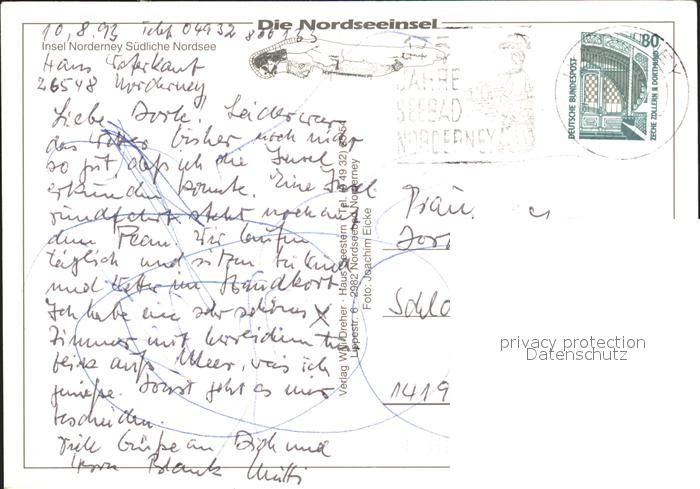 Die Nordseeinsel
10.8.93 Telef. 04932 860133
Insel Norderney Südliche Nordsee
Haus
26548 Norderney
Liebe Leider war
das bisher noch nicht
so gut, daß ich die Insel
erkunden konnte. Eine Insel
rundfahrt steht noch auf
dem Plan. Wir laufen
täglich und sitzen
und im Strandkorb
Ich habe ein sehr schönes
Zimmer mit
blick aufs Meer, was ich
genieße. Sonst geht es mir
bescheiden.
Viele Grüße an Dich und
Herrn Blank Mutti
Verlag Willi Dreher · Haus Seestern (Tel. 0 49 32)
Lippestr. 6 · 2982 Nordseebad Norderney
Foto: Joachim Eicke
JAHRE
SEEBAD
NORDERNEY
80
DEUTSCHE BUNDESPOST
ZECHE ZOLLERN II DORTMUND
Frau
Schlo
1419
privacy protection
Datenschutz